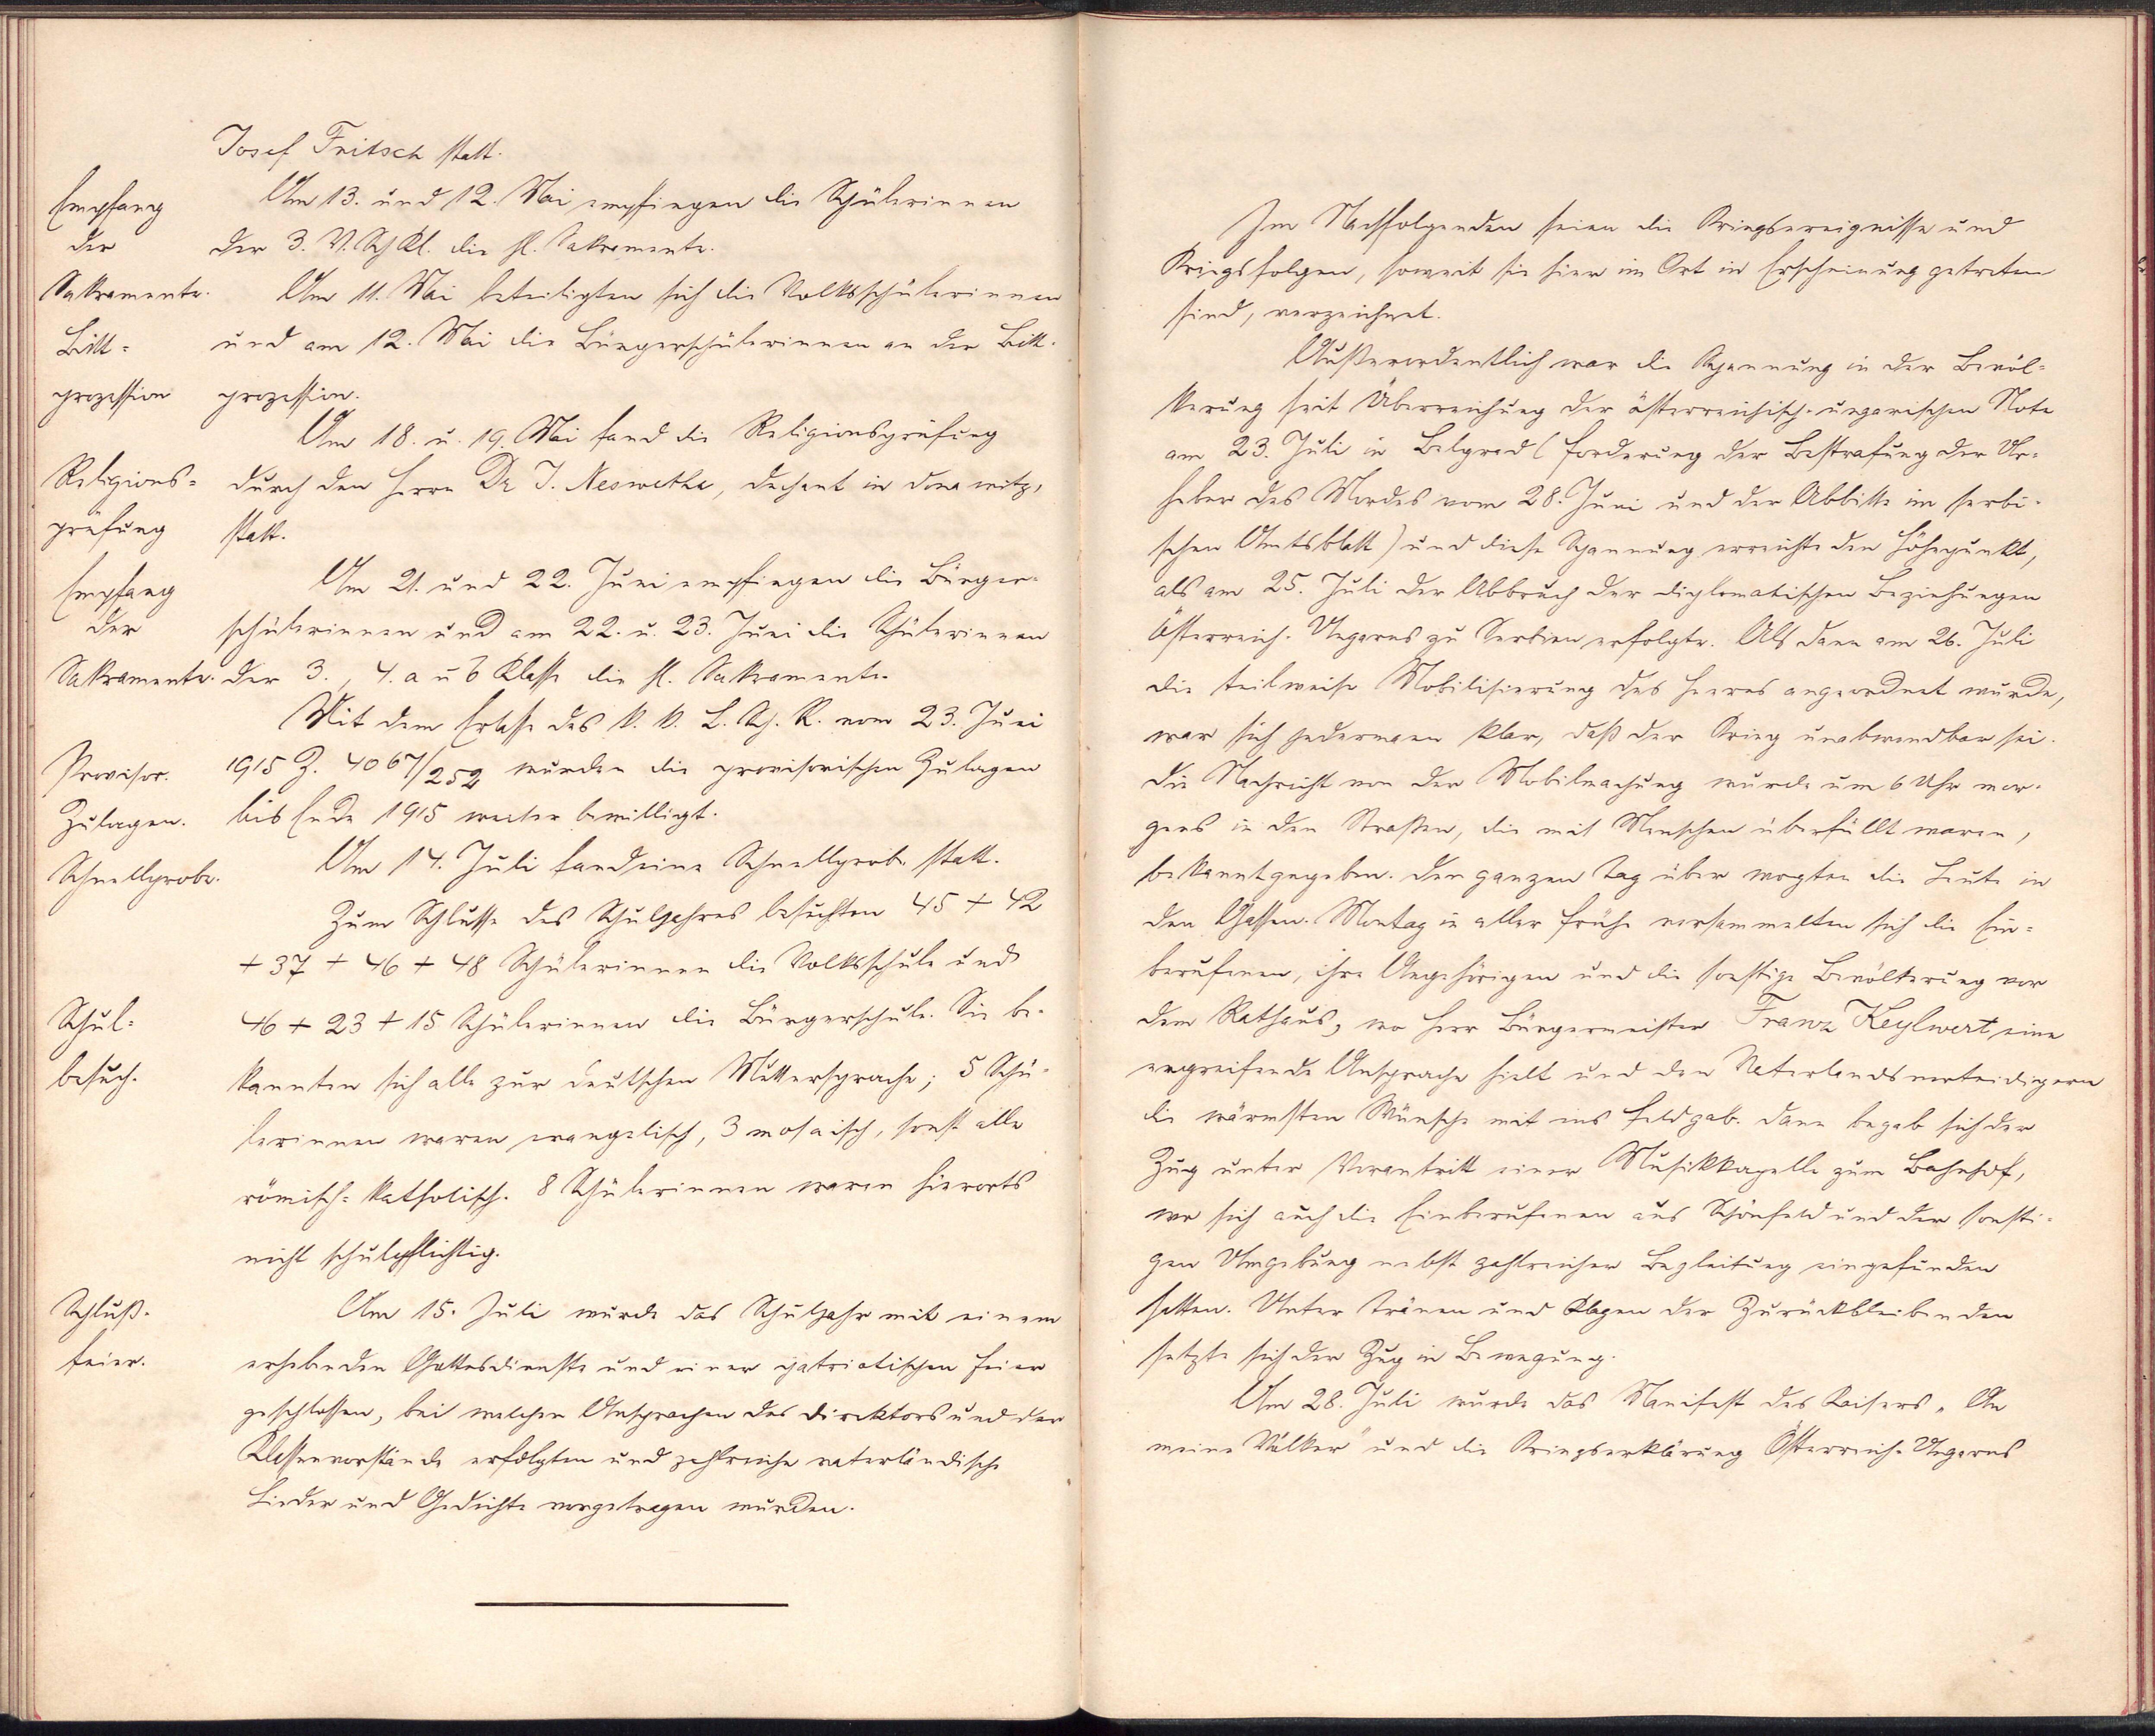 Josef Fritsch statt.
Empfang
der
Sakramente.
Am 13. und 12. Mai empfingen die Schülerinnen
der 3. V. Sch Kl. die hl. Sakramente.
Bitt-
prozession
Am 11. Mai beteiligten sich die Volksschülerinnen
und am 12. Mai die Bürgerschülerinnen an der Bitt-
prozession.
Religions-
prüfung
Am 18. u. 19. Mai fand die Religionsprüfung
durch den Herrn Dr J. Neswetha, Dechant in Donawitz,
statt.
Empfang
der
Sakramente.
Am 21. und 22. Juni empfingen die Bürger-
schülerinnen und am 22. u. 23. Juni die Schülerinnen
der 3., 4. a u b Klasse die hl. Sakramente.
Provisor.
Zulagen.
Mit dem Erlasse des k. k. L. Sch. R. vom 23. Juni
1915 Z. 4067/252 wurden die provisorischen Zulagen
bis Ende 1915 weiter bewilligt.
Schnellprobe.
Am 14. Juli fand eine Schnellprobe statt.
Schul-
besuch.
Zum Schlusse des Schuljahres besuchten 45 + 42
+ 37 + 46 + 48 Schülerinnen die Volksschule und
46 + 23 + 15 Schülerinnen die Bürgerschule. Sie be-
kannten sich alle zur deutschen Muttersprache; 5 Schü-
lerinnen waren evangelisch, 3 mosaisch, sonst alle
römisch-katholisch. 8 Schülerinnen waren hierorts
nicht schulpflichtig.
Schluß-
feier.
Am 15. Juli wurde das Schuljahr mit einem
erhebenden Gottesdienste und einer patriotischen Feier
geschlossen, bei welcher Ansprachen des Direktors und der
Klassenvorstände erfolgten und zahlreiche vaterländische
Lieder und Gedichte vorgetragen wurden.
Im Nachfolgenden seien die Kriegsereignisse und
Kriegsfolgen, soweit sie hier im Ort in Erscheinung getreten
sind, verzeichnet.
Außerordentlich war die Spannung in der Bevöl-
kerung seit Überreichung der österreichisch-ungarischen Note
am 23. Juli in Belgrad (Forderung der Bestrafung der Ur-
heber des Mordes vom 28. Juni und der Abbitte im serbi-
schen Amtsblatt) und diese Spannung erreichte den Höhepunkt,
als am 25. Juli der Abbruch der diplomatischen Beziehungen
Österreich-Ungarns zu Serbien erfolgte. Als dann am 26. Juli
die teilweise Mobilisierung des Heeres angeordnet wurde,
war sich jedermann klar, daß der Krieg unabwendbar sei.
Die Nachricht von der Mobilmachung wurde um 6 Uhr mor-
gens in den Straßen, die mit Menschen überfüllt waren,
bekanntgegeben. Den ganzen Tag über wogten die Leute in
den Gassen. Montag in aller Frühe versammelten sich die Ein-
berufenen, ihre Angehörigen und die sonstige Bevölkerung vor
dem Rathaus, wo Herr Bürgermeister Franz Keylwert eine
ergreifende Ansprache hielt und den Vaterlandsverteidigern
die wärmsten Wünsche mit ins Feld gab. Dann begab sich der
Zug unter Vorantritt einer Musikkapelle zum Bahnhof,
wo sich auch die Einberufenen aus Schönfeld und der sonsti-
gen Umgebung nebst zahlreicher Begleitung eingefunden
hatten. Unter Tränen und Klagen der Zurückbleibenden
setzte sich der Zug in Bewegung.
Am 28. Juli wurde das Manifest des Kaisers „An
meine Völker" und die Kriegserklärung Österreich-Ungarns